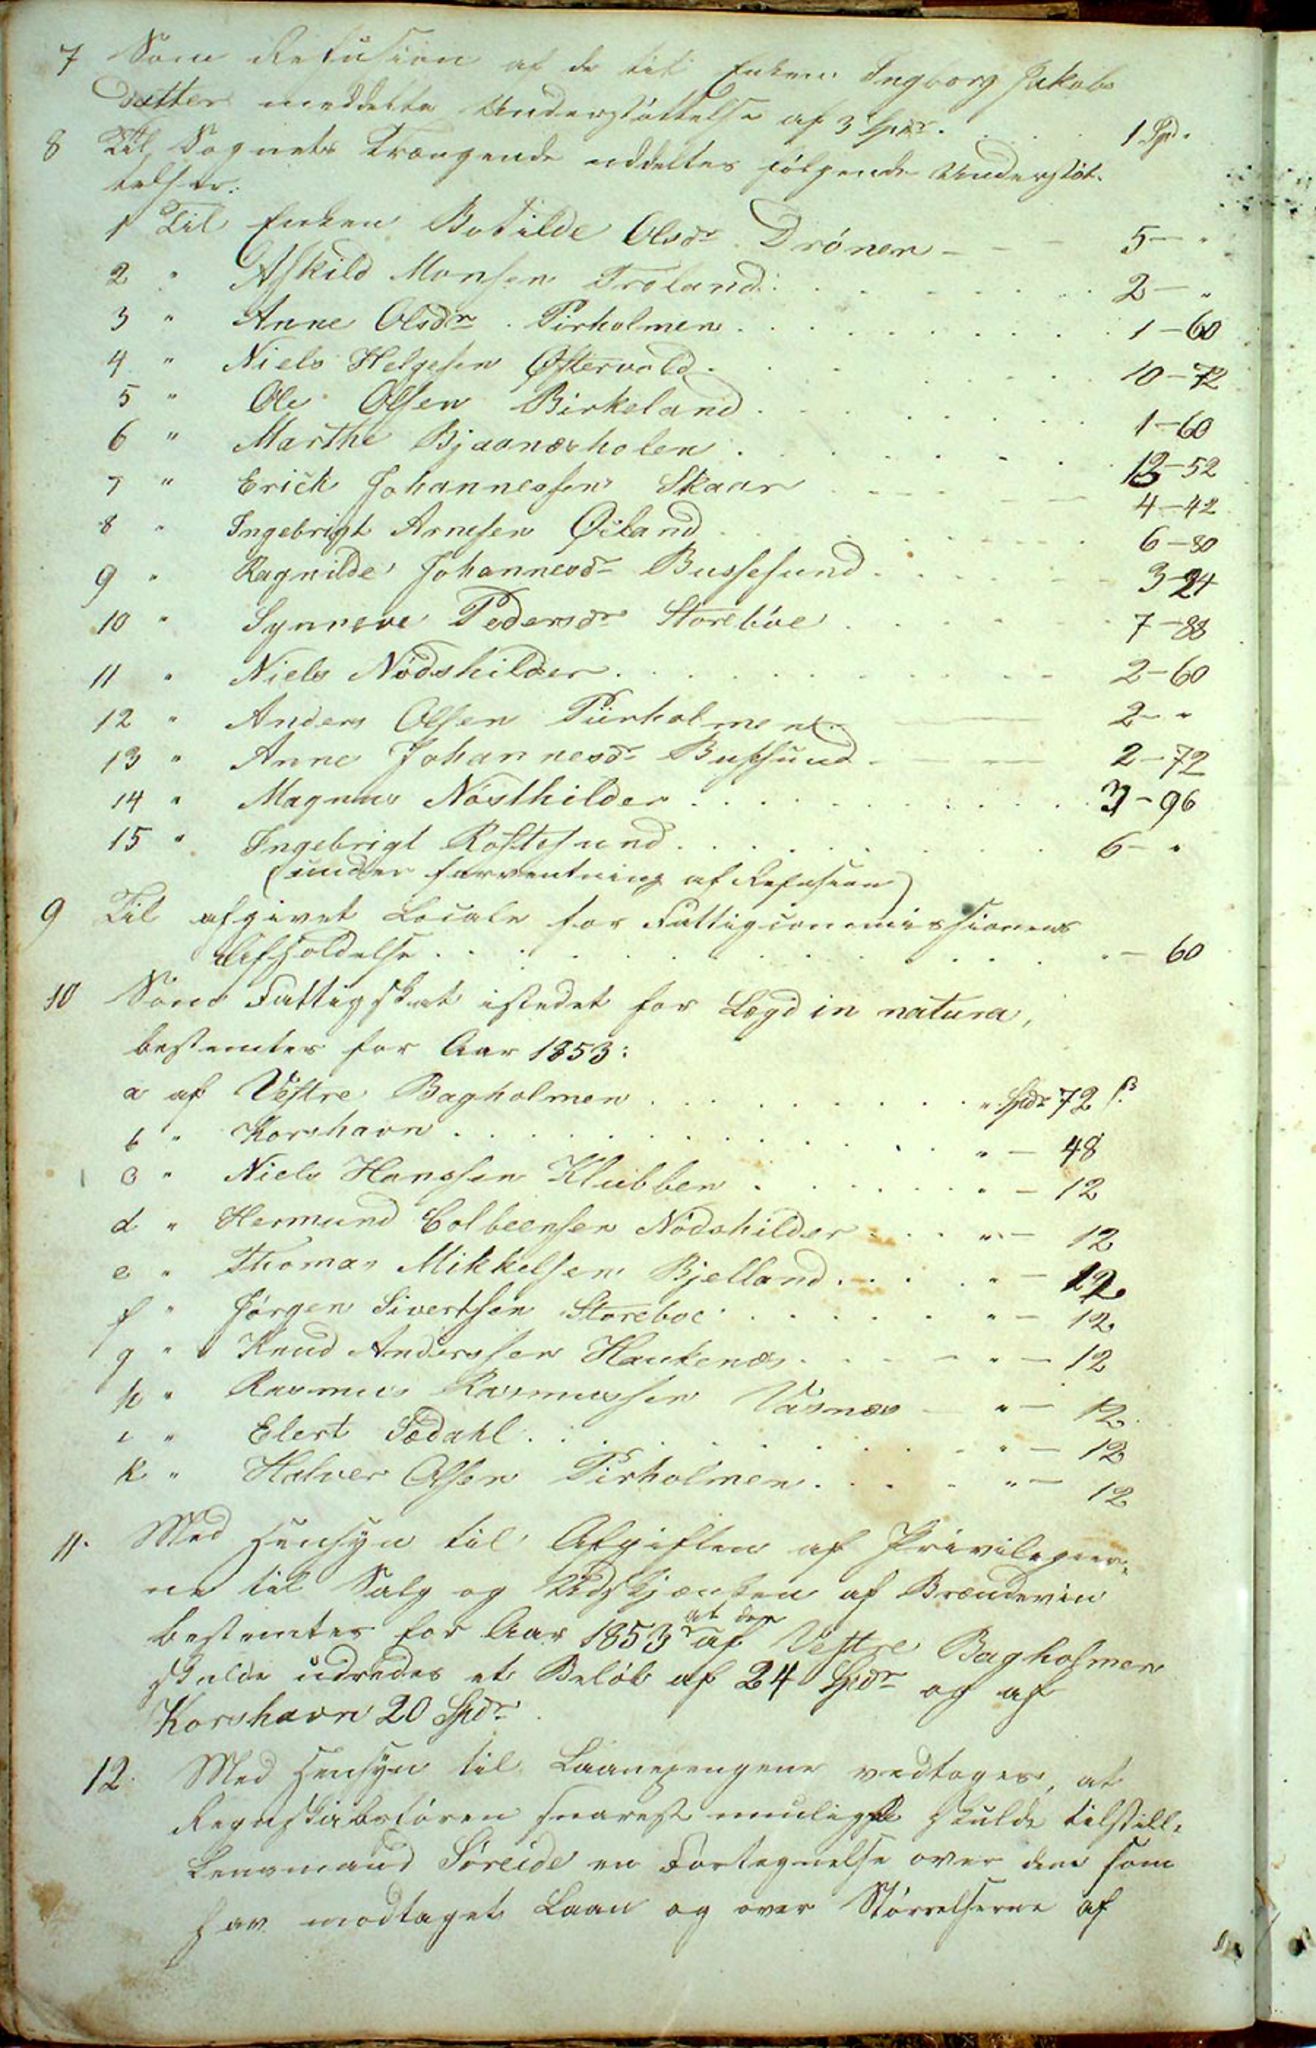 7 Som Refusion af de til Enken Ingborg Jakobs
datter meddelte Understøttelse af 3 Spdr. . . . . 1 Spd "
8 Til Sognets Trængende uddeltes følgende Understøt-
telser:
1 Til Enken Botilde Olsdr Drønen - - - 5 - "
2 " Askild Monsen Troland . . . . . . 2 - "
3 " Anne Olsdr. Pirholmen . . . . . . 1 - 60
4 " Niels Helgesen Østervold . . . . . . 10 - 72
5 " Ole Olsen Birkeland . . . . . . 1 - 60
6 " Marthe Bjaanæsholen . . . . . . 12 - 52
7 " Erick Johannessen Skaar . - - - - 4 - 42
8 " Ingebrigt Arnesen Øeland . . . . . . 6 - 80
9 " Ragnilde Johannesdr Bussesund . . . . . . 3 - 24
10 " Synneve Pedersdr Storebøe . . . . . . 7 - 88
11 " Niels Nødshilder . . . . . . 2 - 60
12 " Anders Olsen Piirholmen - - - 2 - "
13 " Anne Johannesdr Bussund - - - 2 - 72
14 " Magnus Nøsthilder . . . . . . 3 - 96
15 " Ingebrigt Rostesund . . . . . . 6 - "
(under forventning af Refusion)
9 Til afgivet Locale for Fattigcommissionens
Afholdelse . . . . . . - 60
10 Som Fattigskat istedet for Lægd in natura,
bestemtes for Aar 1853:
a af Vestre Bagholmen . . . . . . " Spdr 72 ß
b " Korshavn . . . . . . " - 48
c " Niels Hanssen Klubben . . . . . . " - 12
d " Hermund Colbeensen Nødshilder . . . " - 12
e " Thomas Mikkelsen Bjelland . . . . " - 12
f " Jørgen Sivertsen Storeboe . . . . . . " - 12
g " Knud Anderssen Haukenæs . . . - " - 12
h " Rasmus Rasmussen Vasnæs - " - 12
i " Elert Sædahl . . . . . . " - 12
k " Halver Olsen Pirholmen . . . . " - 12
11. Med Hensyn til Afgiften af Privilegier-
ne til Salg og Udskjænken af Brændeviin
bestemtes for Aar 1853 at der af Vestre Bagholmen
skulde udredes et Beløb af 24 Spdr og af
Korshavn 20 Spdr.
12. Med Hensyn til Laanepengene vedtoges, at
Regnskabsføren snarest muligst skulde tilstille
Lensmand Søreide en Fortegnelse over dem som
har modtaget Laan og over Størrelserne af